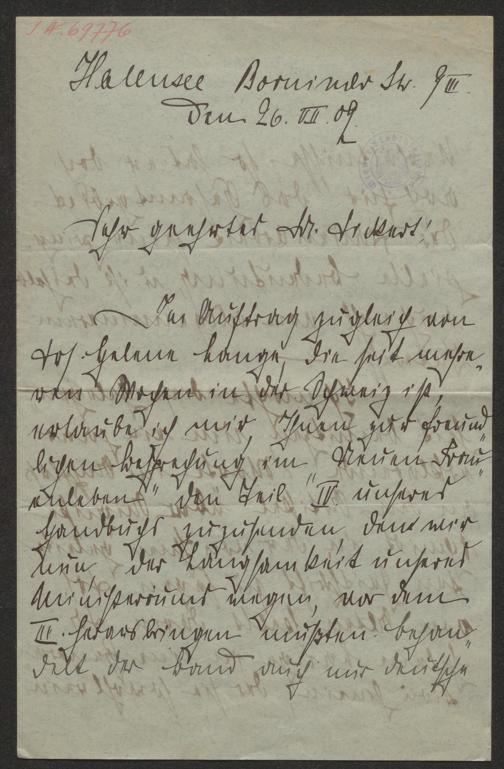 I.N. 69776
Halensee Bornimer Str. 9 III.
den 26. VII. 09.
Sehr geehrter Dr.
Im Auftrag zugleich von
Frl. Helene Lange, die seit mehre-
ren Wochen in der Schweiz ist,
erlaube ich mir, Ihnen zur freund-
lichen Besprechung im "Neuen Frau-
enleben" den Teil IV. unseres
Handbuchs zuzusenden, den wir
nun der Langsamkeit unseres
Ministeriums wegen, vor dem
III. herausbringen mußten. Behan-
delt der Band auch nur deutsche